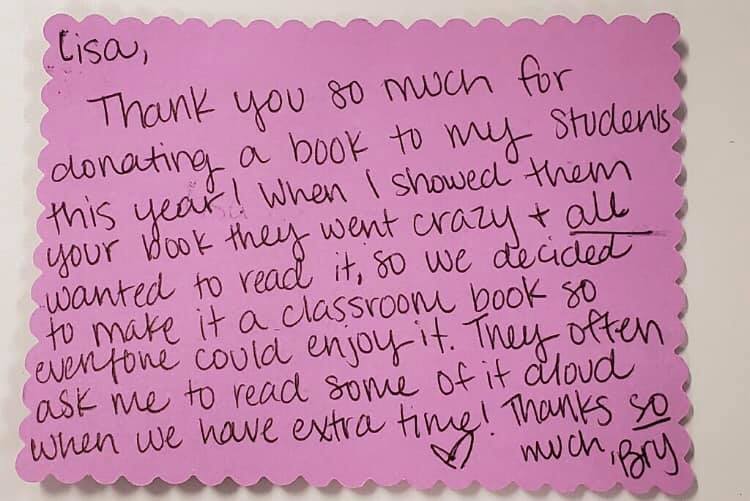 Lisa,
Thank you so much for
donating a book to my students
this year! When I showed them
your book they went crazy + all
wanted to read it, so we decided
to make it a classroom book so
everyone could enjoy it. They often
ask me to read some of it aloud
when we have extra time! Thanks so
much, Bry